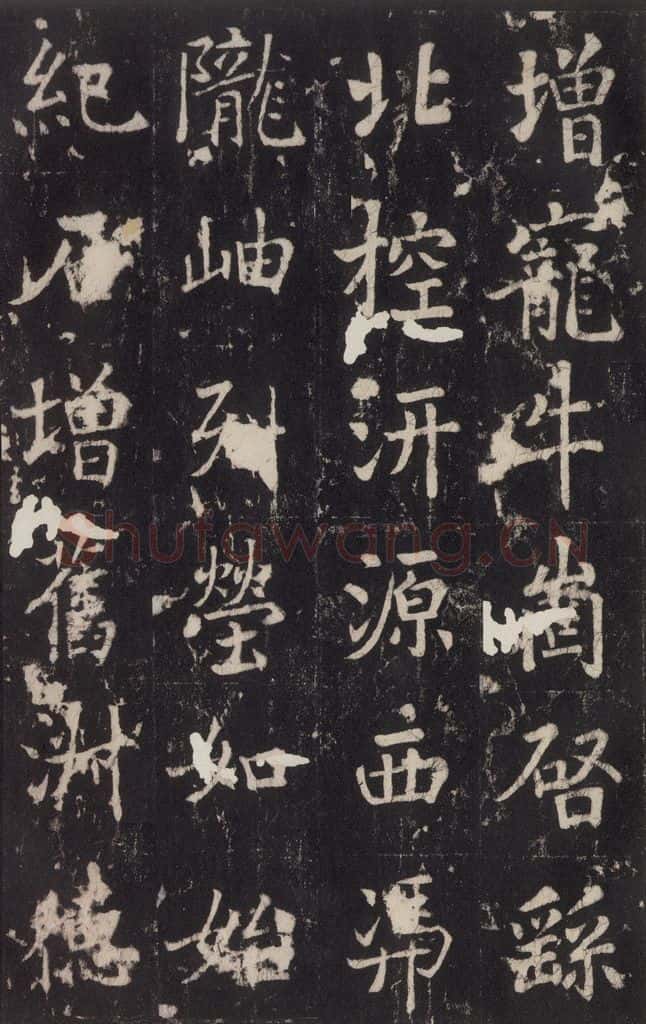 增寵牛齒啓繇
北控汧源西馮
隴岫列塋如始
紀增舊德
Shufawang.CN